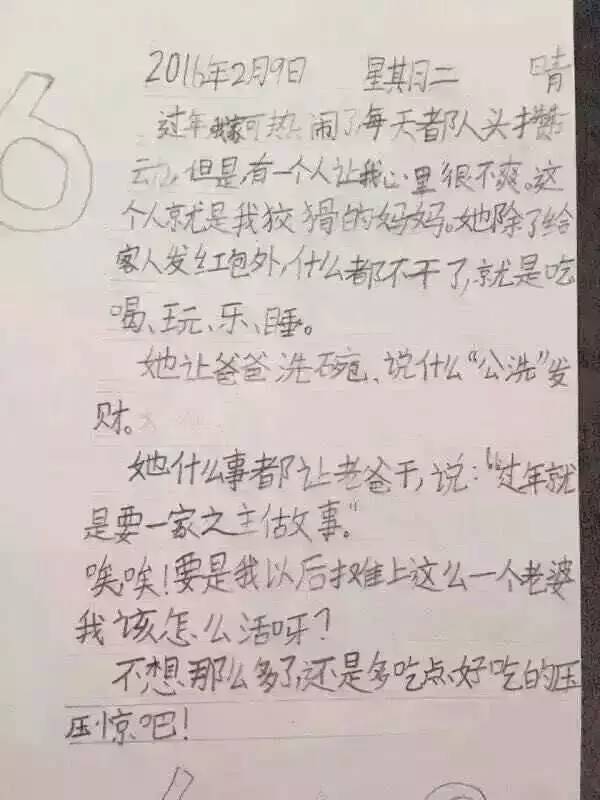 6
2016年2月9日 星期二 晴
过年我家可热闹了,每天都人头攒
动,但是,有一个人让我心里很不爽。这
个人就是我狡猾的妈妈。她除了给
客人发红包外,什么都不干了,就是吃
喝、玩、乐、睡。
她让爸爸洗碗、说什么“公洗”发
财。
她什么事都让老爸干,说:“过年就
是要一家之主做事。”
唉,唉!要是我以后摊上这么一个老婆
我该怎么活呀?
不想那么多了,还是多吃点好吃的压
压惊吧!